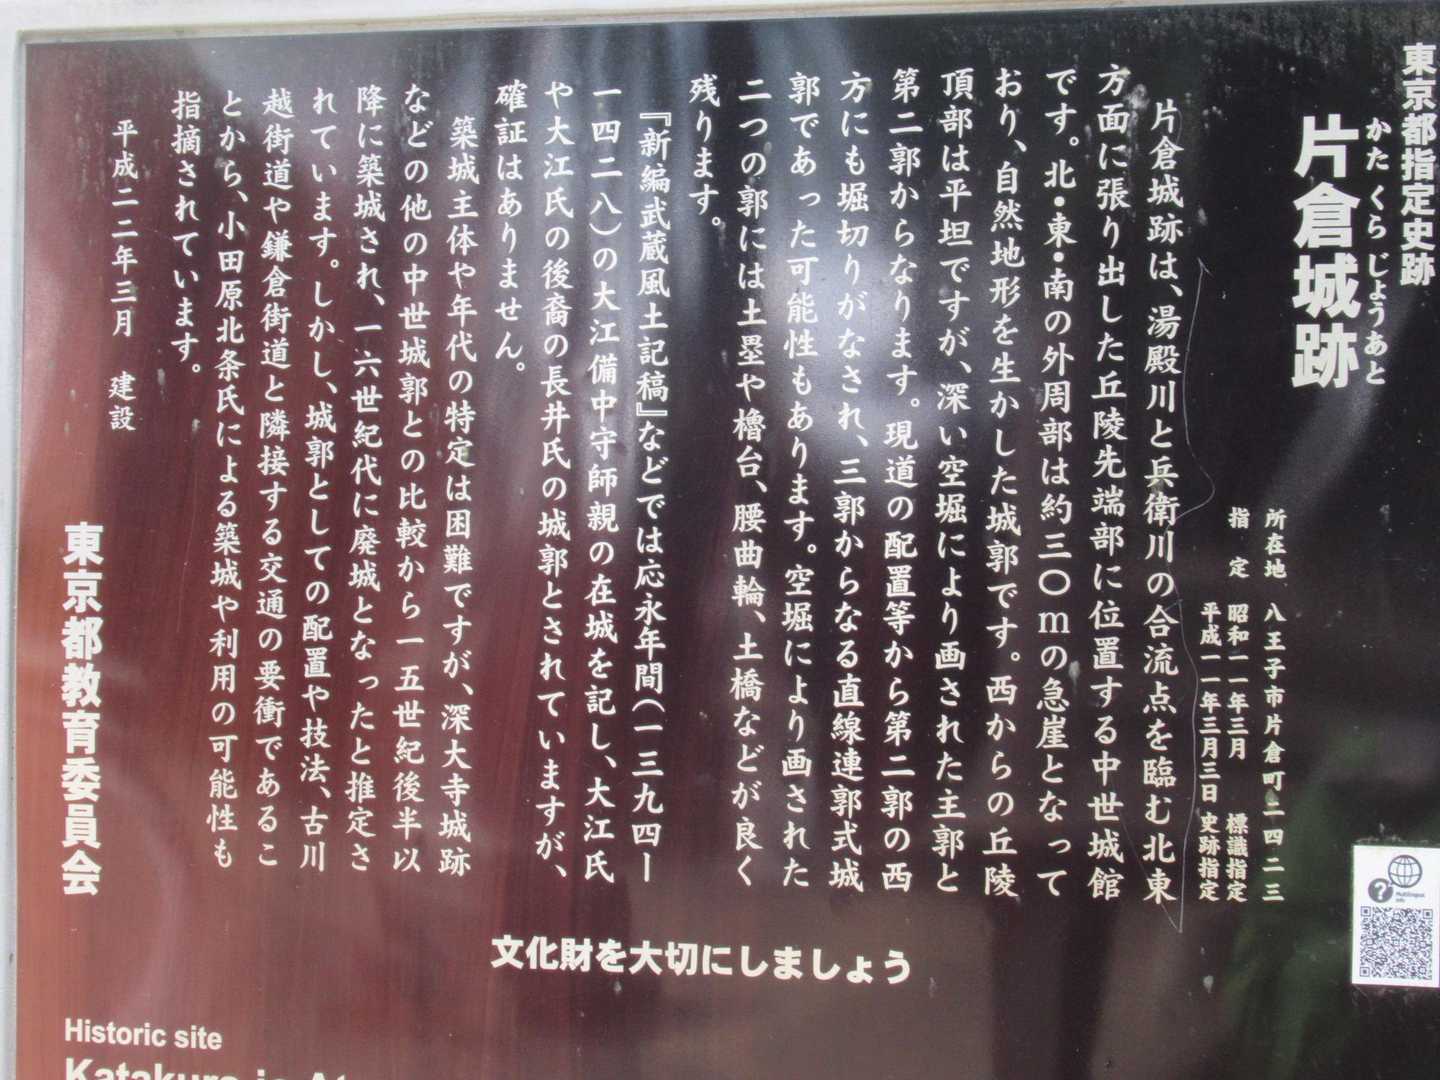 東京都指定史跡
かたくらじょうあと
片倉城跡
所在地 八王子市片倉町二四二三
指定 昭和一一年三月 標識指定
平成一一年三月三日 史跡指定
片倉城跡は、湯殿川と兵衛川の合流点を臨む北東
方面に張り出した丘陵先端部に位置する中世城館
です。北・東・南の外周部は約三〇mの急崖となって
おり、自然地形を生かした城郭です。西からの丘陵
頂部は平坦ですが、深い空堀により画された主郭と
第二郭からなります。現道の配置等から第二郭の西
方にも堀切りがなされ、三郭からなる直線連郭式城
郭であった可能性もあります。空堀により画された
二つの郭には土塁や櫓台、腰曲輪、土橋などが良く
残ります。
『新編武蔵風土記稿』などでは応永年間(一三九四ー
一四二八)の大江備中守師親の在城を記し、大江氏
や大江氏の後裔の長井氏の城郭とされていますが、
確証はありません。
築城主体や年代の特定は困難ですが、深大寺城跡
などの他の中世城郭との比較から一五世紀後半以
降に築城され、一六世紀代に廃城となったと推定さ
れています。しかし、城郭としての配置や技法、古川
越街道や鎌倉街道と隣接する交通の要衝であるこ
とから、小田原北条氏による築城や利用の可能性も
指摘されています。
平成二二年三月 建設
東京都教育委員会
文化財を大切にしましょう
Multilingual
Info
Historic site